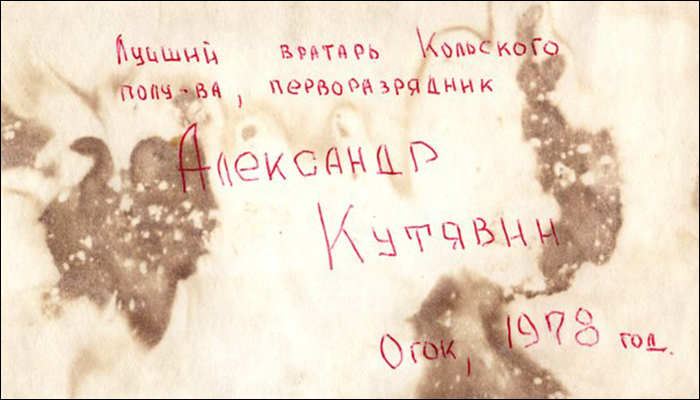 Лучший вратарь Кольского
полу-ва, перворазрядник
Александр
Кутявин
Огок, 1978 год.